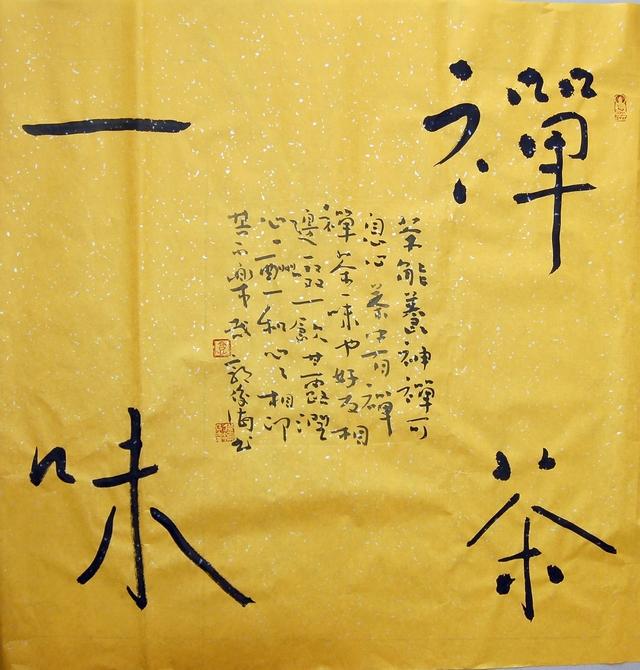 禪茶
一味
茶能養神禪可
息心茶中有禪
禪茶一味也好友相
一飲甘露潤
心一酬一和心心相印
不樂哉
郭
书